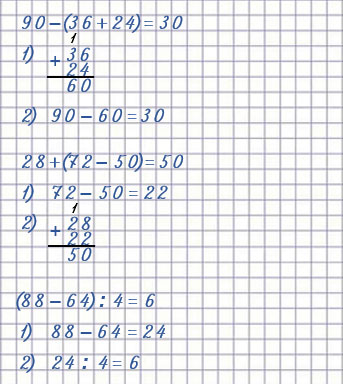 90-(36+24)=30
1
1) 36
+
24
60
2) 90-60=30
28+(72-50)=50
1) 72-50=22
1
2) 28
+
22
50
(88-64):4=6
1) 88-64=24
2) 24:4=6